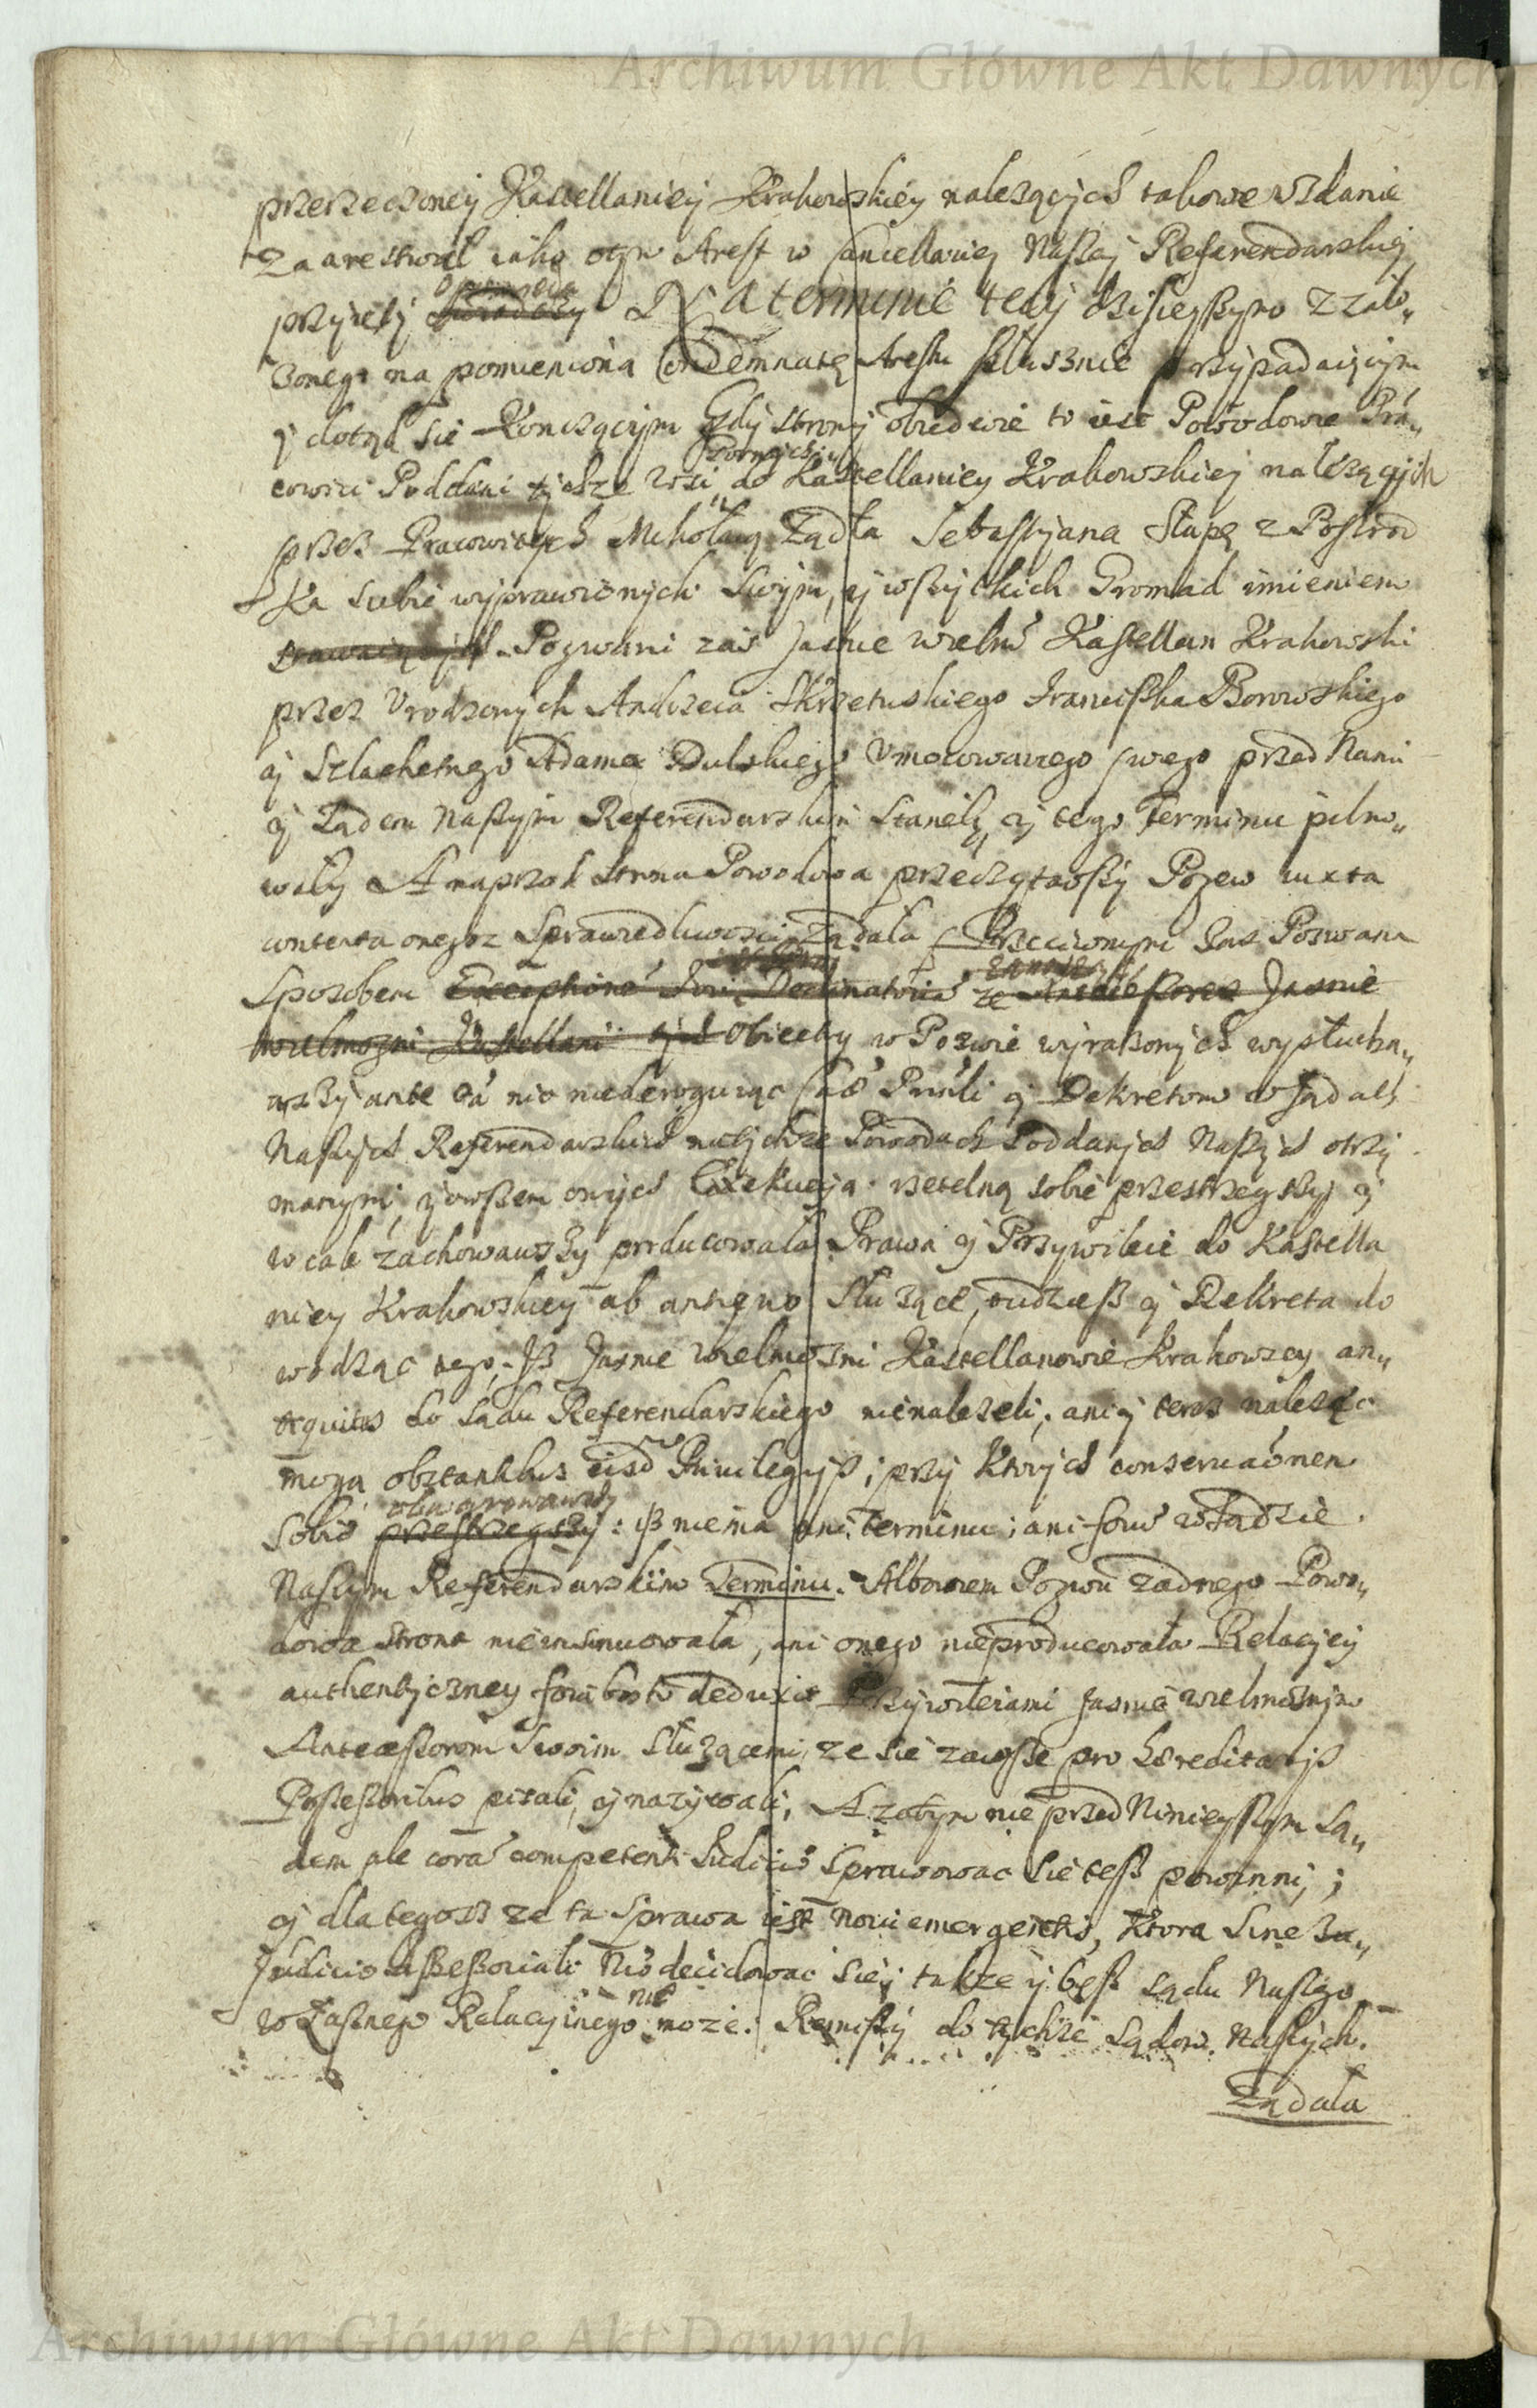 Archiwum Główne Akt Dawnych
przerzeczoney Kastellaniey Krakowskiey należących takowe wzdanie
zaarestował iako ten Arest w Cancellariey Naszey Referendarskiey
przyięty Na terminie tedy dzisieyszym z zało„
żonego na pomienioną Condemnatę Arestu słusznie przypadaiącym
y dotąd się kończącym Gdy strony obiedwie to iest Powodowie Pra„
cowici Poddani tychże wsi do Kastellaniey Krakowskiey należących
przez Pracowitych Mikołaia Żądła Sebastyana Słupę z Pośrod
ka siebie wyprawionych swym, y wszytkich Gromad imieniem
Pozwani zaś Jasnie wielmo Kasztellan Krakowski
przez Urodzonych Andrzeia Skrzetuskiego Franciszka Borowskiego
y Szlachetnego Adama Dulskiego Umocowanego swego przed Nami
y Sądem Naszym Referendarskim Staneły y tego Terminu pilno„
wały A naprzod Strona Powodowa przeczytawszy Pozew iuxta
contenta onegoz Sprawiedliwosci Żądała Przeciwnym zas Pozwana
Sposobem Exceptione Fori Declinatoria ze Jasnie
wielmozni Kasztellani Obiekcy w Pozwie wyrażonych wysłucha„
wszy ante oa nic niederoguiąc y Dekretom w Sądach
Naszych Referendarskich Powodach Poddanych Naszych otrzy
manymi, y owszem onych Exekucyią rzetelną sobie przestrzegszy y
w cale zachowawszy producowała Prawa y Przywileie do Kastella
niey Krakowskiey ab antiquo Służące, tudziesz y Dekreta do
wodząc tego, Isz Jasnie wielmożni Kastellanowie Krakowscy an„
tiquitus do Sądu Referendarskiego nienależeli, ani y teraz należeć
mogą obstantibus eisd Priuilegijs; przy ktorych
Sobie przestrzegszy: isz niema ani Terminu; ani fori w Sądzie
Naszym Referendarskim Terminu. Albowiem Pozwu żadnego Powo„
dowa Strona nieinsinuowała, ani onego nieproducowała Relacyey
authentyczney deduxit Przywileiami Jasnie wielmożnym
Antecessorom Swoim Służącemi, ze się zawsze pro haereditarijs
Possessoribus pisali, y nazywali, A zatym nie przed Ninieyszym Są„
dem ale cora competenti Iudicio Sprawować się tesz powinni;
y dlategosz ze ta Sprawa iest noui emergentis, Ktora Sine
Judicio Assessoriali decidować się; takze y besz sądu Naszego
własnego Relacyinego nie moze. Remissy do tychże Sądow Naszych.
Żądała
Archiwum Główne Akt Dawnych